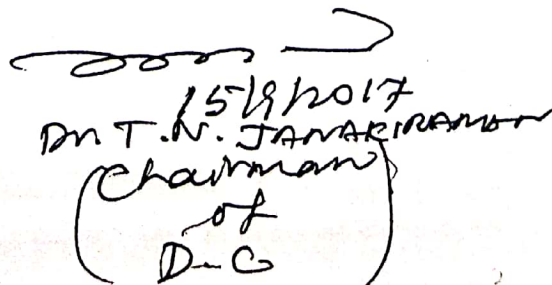 15/9/2017
Dr. T.N. JANAKIRAMAN
(Chairman
of
D-C)